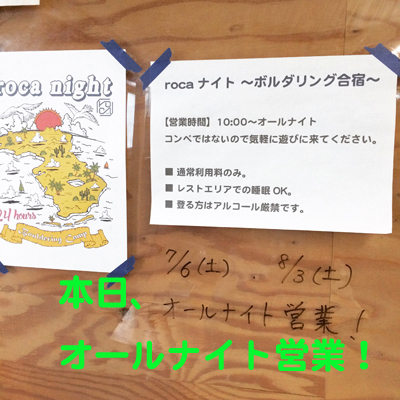 roca night
24 hours
Bouldering Camp
roca ナイト 〜ボルダリング合宿〜
【営業時間】10:00〜オールナイト
コンペではないので気軽に遊びに来てください。
■ 通常利用料のみ。
■ レストエリアでの睡眠 OK。
■ 登る方はアルコール厳禁です。
7/6(土)、8/3(土)
オールナイト営業！
本日、
オールナイト営業！